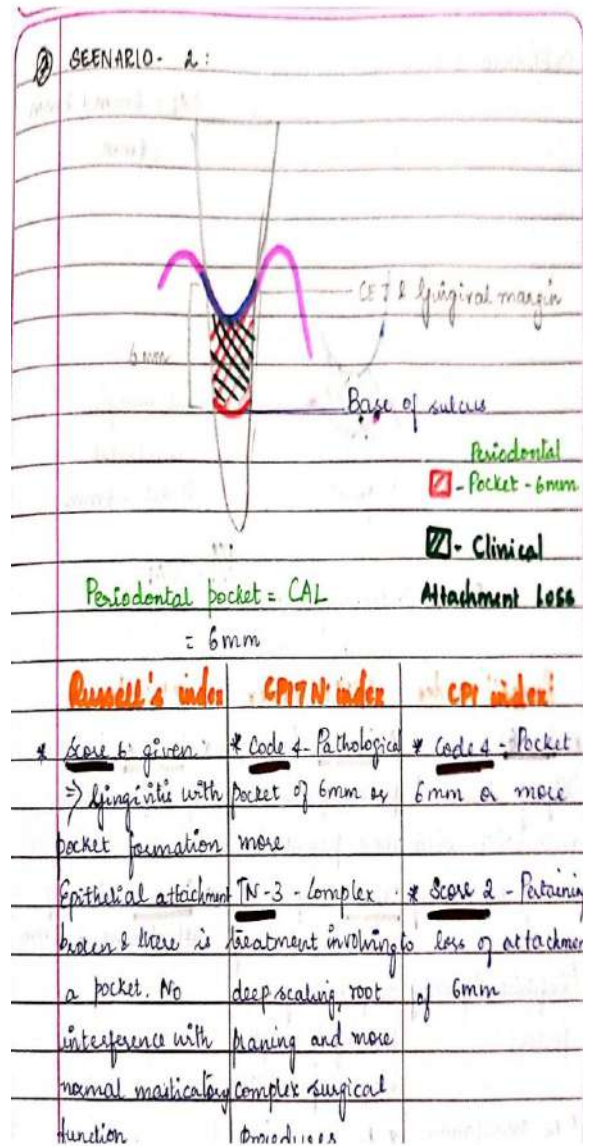 ② SEENARIO - 2 :
CEJ & Gingival margin
6 mm
Base of sulcus
Periodontal
- Pocket - 6mm
- Clinical
Attachment Loss
Periodontal pocket = CAL
= 6mm
Russell's index
* Score 6 given
⇒ Gingivitis with
pocket formation
Epithelial attachment
broken & there is
a pocket. No
interference with
normal masticatory
function
CPITN index
* Code 4 - Pathological
pocket of 6mm or
more
TN-3 - Complex
treatment involving
deep scaling, root
planing and more
complex surgical
Procedures
CPI index
* Code 4 - Pocket
6mm or more
* Score 2 - Pertaining
to loss of attachmen
of 6mm